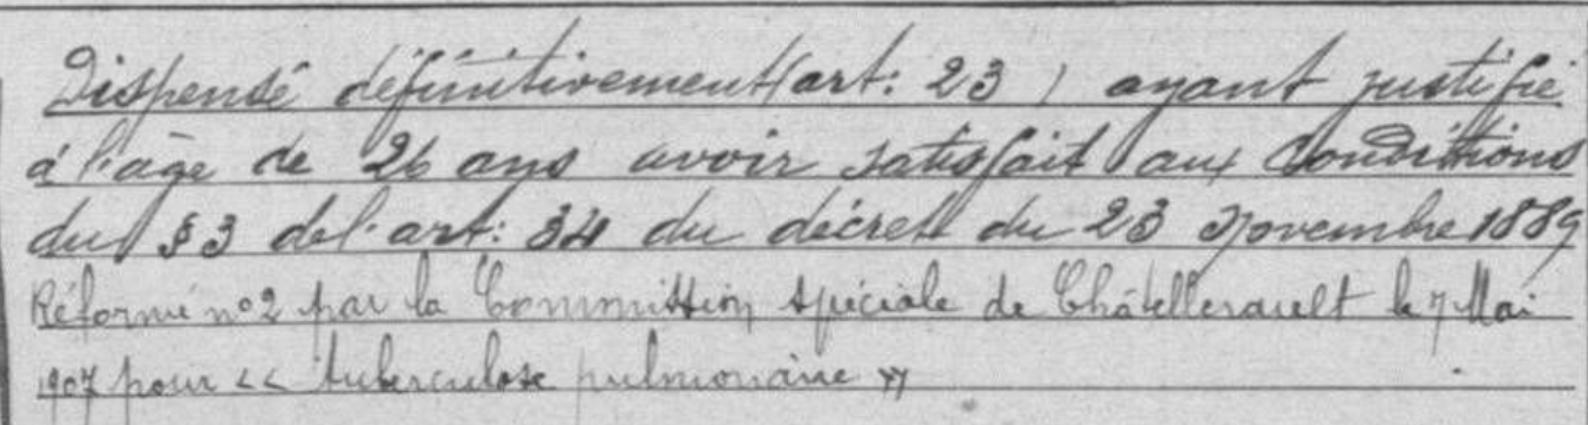 Dispensé définitivement (art: 23) ayant justifié
à l'âge de 26 ans avoir satisfait aux conditions
du § 3 de l'art: 34 du décret du 23 Novembre 1889
Réformé n° 2 par la Commission spéciale de Châtellerault le 7 Mai
1907 pour << tuberculose pulmonaire >>